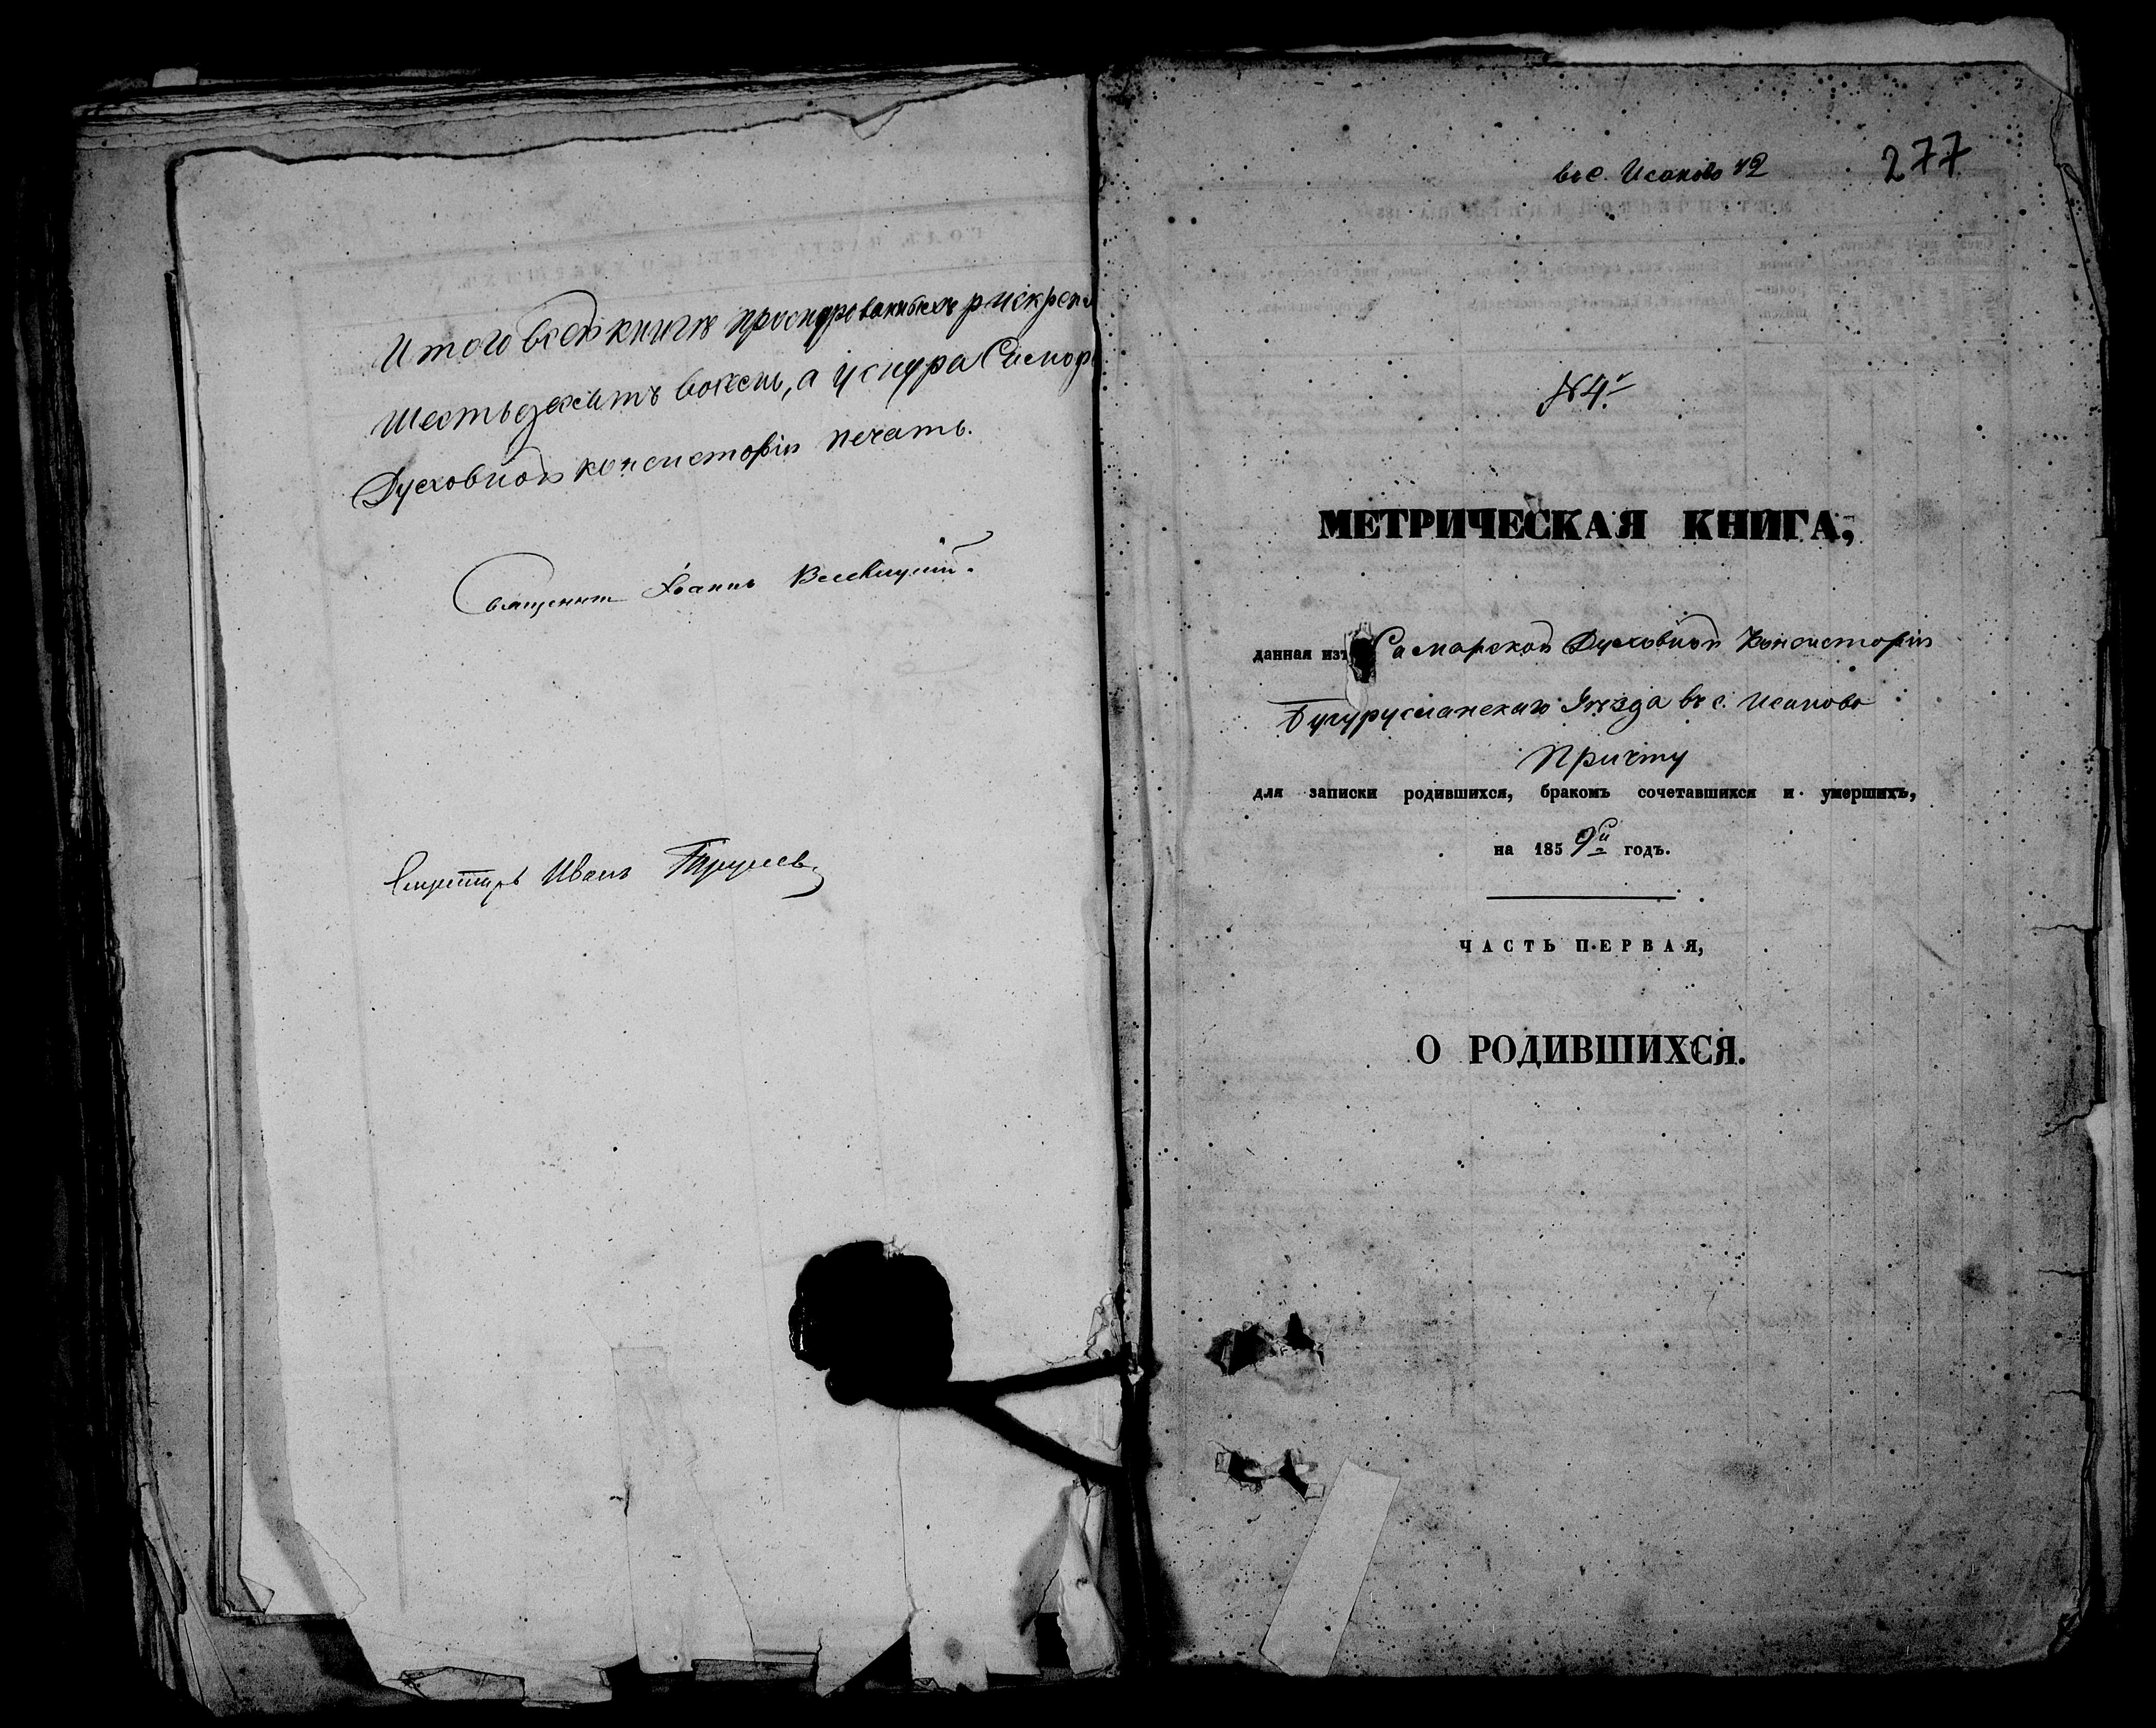 Итого въ сей книгѣ прошнурованныхъ и скреп
Шестьдесятъ восемь, а у снура Самар
Духовной консисторіи печать.
Священник Іоаннъ
Секретарь Иванъ
въ с. Исаково 42
277
№ 4.й
МЕТРИЧЕСКАЯ КНИГА,
данная изъ Самарской Духовной Консисторіи
Бугурусланскаго Уѣзда въ с. Исаково
Причту
для записки родившихся, бракомъ сочетавшихся и умершихъ,
на 1859й годъ.
ЧАСТЬ ПЕРВАЯ,
О РОДИВШИХСЯ.